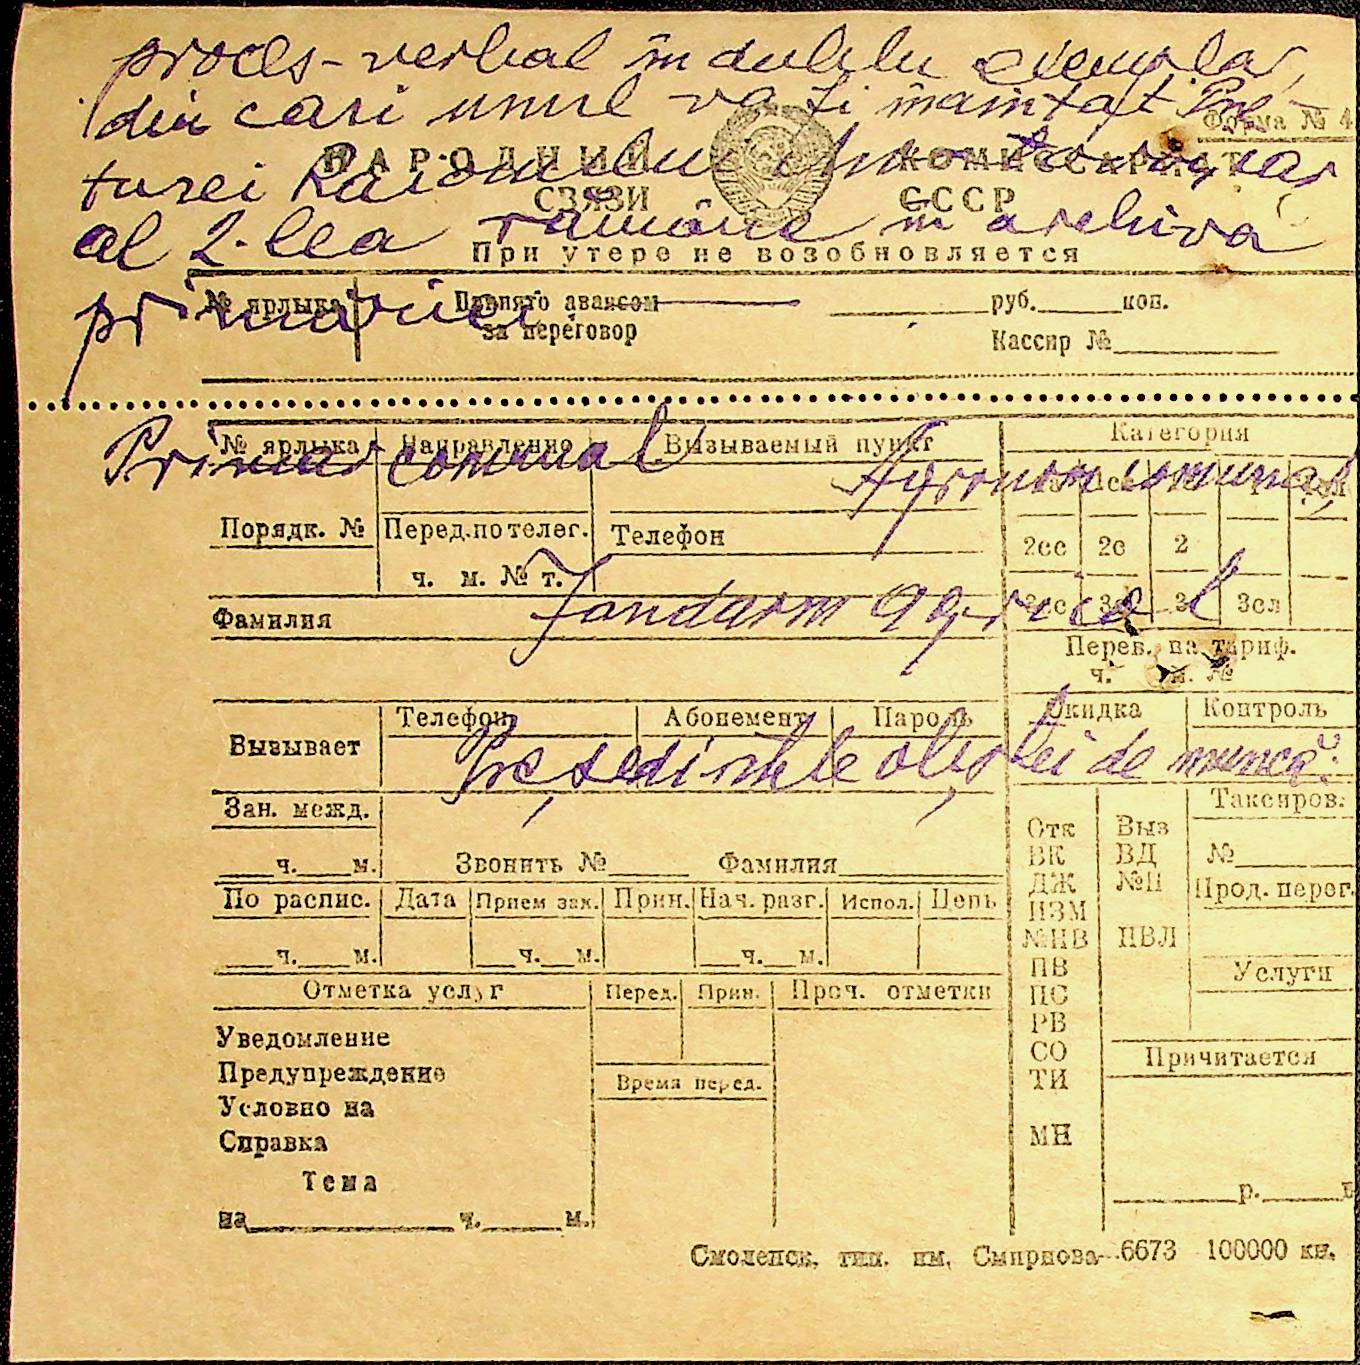 proces-verbal în dublu exemplar,
din cari unul va fi înaintat Pre-
Форма № 4
turei Raionului iar
НАРОДНЫЙ КОМИССАРИАТ
СВЯЗИ СССР
al 2-lea rămâne în arhiva
При утере не возобновляется
primăriei
№ ярлыка Принято авансом руб. коп.
за переговор
Кассир №
Primar comunal Agronom comunal,
№ ярлыка Направление Вызываемый пункт Категория
Порядк. № Перед. по телег. Телефон 2сс 2с 2
ч. м. № т.
Jandarm agricol
Фамилия 3сс 3с 3 3сл
Перев. на тариф.
ч. м. №
Телефон Абонемент Пароль Скидка Контроль
Вызывает
Președintele obștei de muncă:
Зан. межд. Таксиров.
Отк Выз
ч. м. Звонить № Фамилия ВК ВД №
По распис. Дата Прием зак. Прин. Нач. разг. Испол. Цепь ДЖ №П Прод. перег.
ИЗМ
ч. м. ч. м. ч. м. №НВ ПВЛ
Отметка услуг Перед. Прин. Проч. отметки ПВ Услуги
ПС
Уведомление РВ
Предупреждение Время перед. СО Причитается
Условно на ТИ
Справка МН
Тема
на ч. м. р. к
Смоленск, тип. им. Смирнова 6673 100000 кн.